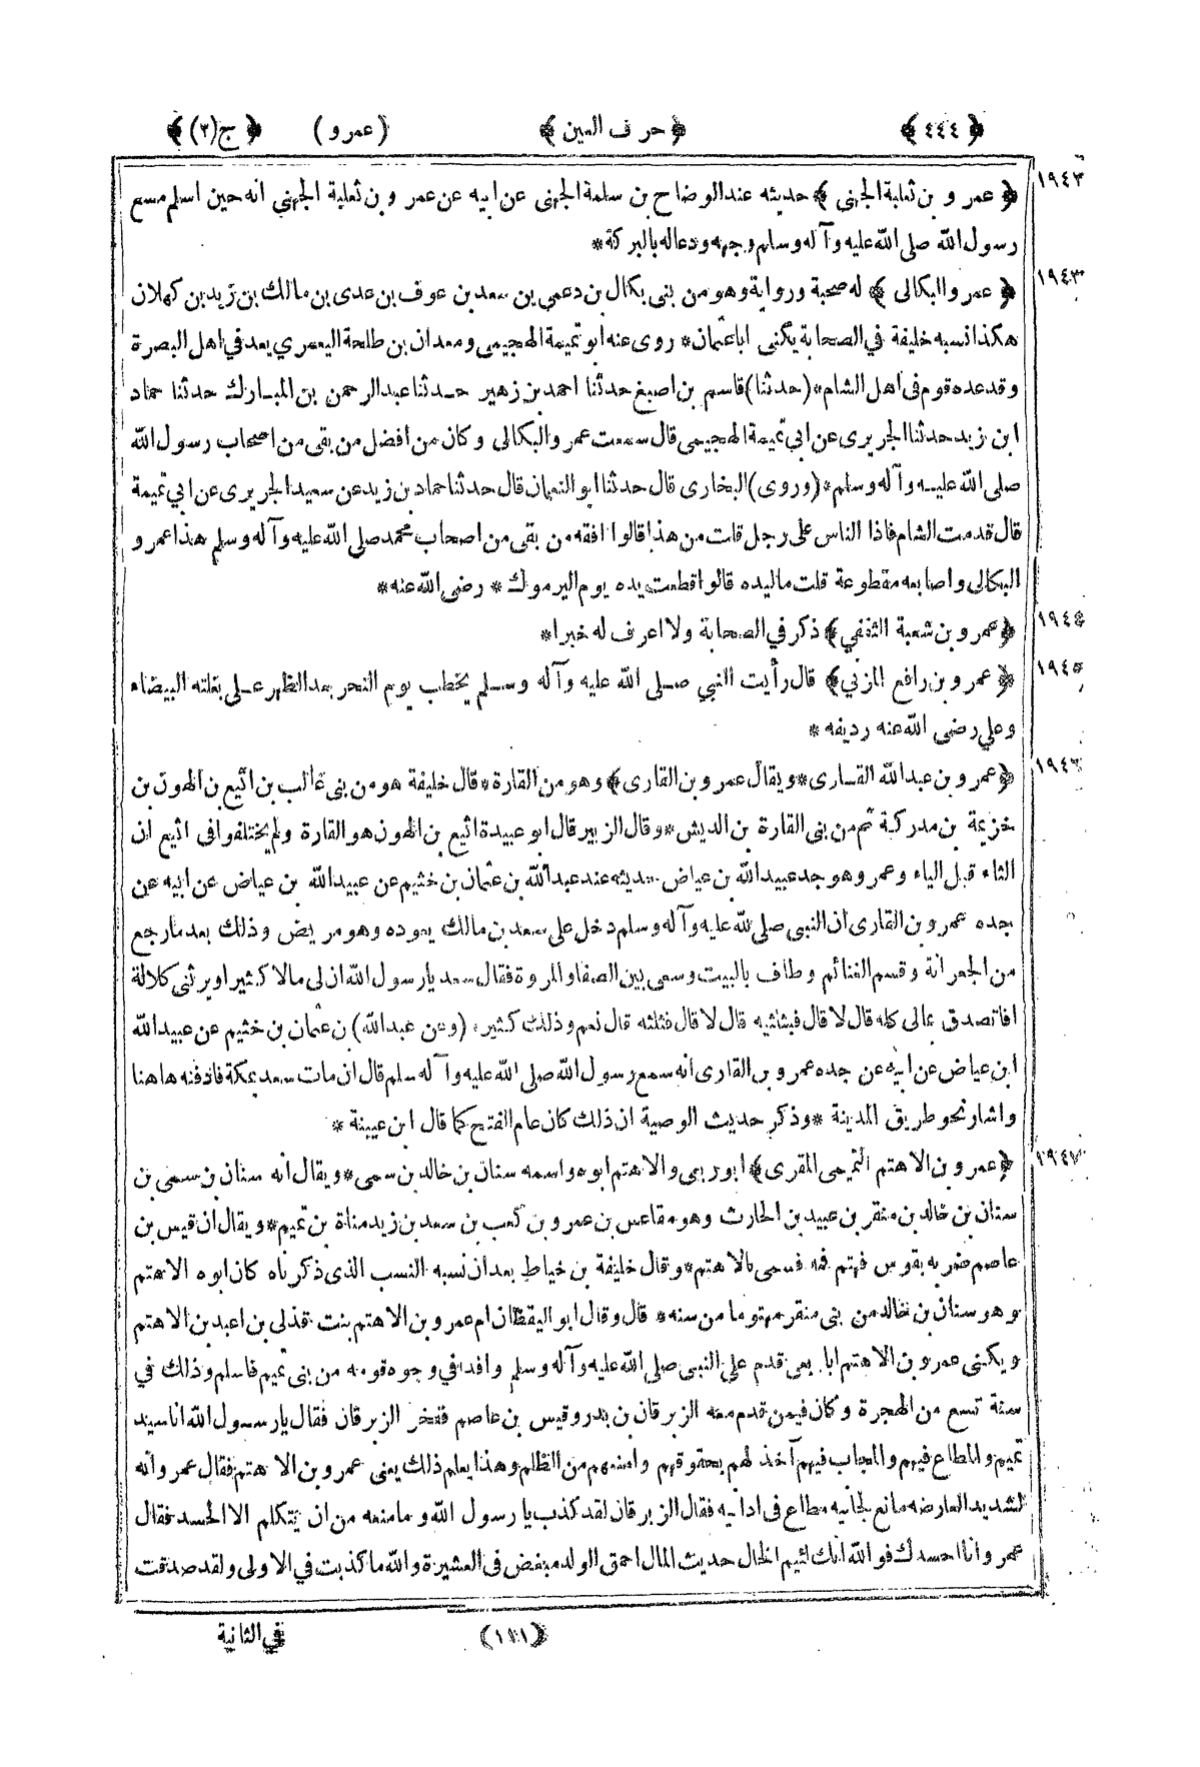 ﴿ ٤٤٤ ﴾ ﴿ حرف العين ﴾ (عمرو) ﴿ ج(٢) ﴾
١٩٤٢ ﴿ عمرو بن ثعلبة الجهنى ﴾ حديثه عند الوضاح بن سلمة الجهنى عن ابيه عن عمرو بن ثعلبة الجهني انه حين اسلم مسح
رسول الله صلى الله عليه وآله وسلم وجهه ودعا له بالبركة*
١٩٤٣ ﴿ عمرو البكالى ﴾ له صحبة ورواية وهو من بنى بكال بن دعمى بن سعد بن عوف بن عدى بن مالك بن زيد بن كهلان
هكذا نسبه خليفة في الصحابة يكنى ابا عثمان* روى عنه ابو تميمة الهجيمى ومعدان بن طلحة اليعمري يعد في اهل البصرة
وقد عده قوم فى اهل الشام* (حدثنا) قاسم بن اصبغ حدثنا احمد بن زهير حدثنا عبد الرحمن بن المبارك حدثنا حماد
ابن زيد حدثنا الجريرى عن ابي تميمة الهجيمى قال سمعت عمرو البكالى وكان من افضل من بقى من اصحاب رسول الله
صلى الله عليه وآله وسلم* (وروى) البخارى قال حدثنا ابو النعمان قال حدثنا حماد بن زيد عن سعيد الجريرى عن ابي تميمة
قال قدمت الشام فاذا الناس على رجل قلت من هذا قالوا افقه من بقى من اصحاب محمد صلى الله عليه وآله وسلم هذا عمرو
البكالى واصابعه مقطوعة قلت ما ليده قالوا قطعت يده يوم اليرموك * رضى الله عنه*
١٩٤٤ ﴿عمرو بن شعبة الثقفي﴾ ذكر في الصحابة ولا اعرف له خبرا*
١٩٤٥ ﴿ عمرو بن رافع المزني﴾ قال رأيت النبي صلى الله عليه وآله وسلم يخطب يوم النحر بعد الظهر على بغلته البيضاء
وعلي رضى الله عنه رديفه *
١٩٤٦ ﴿عمرو بن عبد الله القارى* ويقال عمرو بن القارى﴾ وهو من القارة* قال خليفة هو من بنى غالب بن اثيع بن الهون بن
خزيمة بن مدركة ثم من بنى القارة بن الديش* وقال الزبير قال ابو عبيدة اثيع بن الهون هو القارة ولم يختلفوا فى اثيع ان
الثاء قبل الياء وعمرو هو جد عبيد الله بن عياض حديثه عند عبد الله بن عثمان بن خثيم عن عبيد الله بن عياض عن ابيه عن
جده عمرو بن القارى ان النبى صلى الله عليه وآله وسلم دخل على سعد بن مالك يعوده وهو مريض وذلك بعد ما رجع
من الجعرانة وقسم الغنائم وطاف بالبيت وسعى بين الصفا والمروة فقال سعد يا رسول الله ان لى مالا كثيرا ويرثنى كلالة
افاتصدق بمالى كله قال لا قال فبثلثيه قال لا قال فثلثه قال نعم وذلك كثير* (وعن عبد الله) بن عثمان بن خثيم عن عبيد الله
ابن عياض عن ابيه عن جده عمرو بن القارى انه سمع رسول الله صلى الله عليه وآله سلم قال ان مات سعد بمكة فادفنه ها هنا
واشار نحو طريق المدينة * وذكر حديث الوصية ان ذلك كان عام الفتح كما قال ابن عيينة *
١٩٤٧ ﴿عمرو بن الاهتم التميمى المقرى﴾ ابو ربعى والاهتم ابوه واسمه سنان بن خالد بن سمى* ويقال انه سنان بن سمى بن
سنان بن خالد بن منقر بن عبيد بن الحارث وهو مقاعس بن عمرو بن كعب بن سعد بن زيد مناة بن تميم* ويقال ان قيس بن
عاصم ضربه بقوس فهتم فمه فسمى بالاهتم* وقال خليفة بن خياط بعد ان نسبه النسب الذى ذكرناه كان ابوه الاهتم
وهو سنان بن خالد من بنى منقر مهتوما من سنه* قال وقال ابو اليقظان ام عمرو بن الاهتم بنت قذلى بن اعبد بن الاهتم
ويكنى عمرو بن الاهتم ابا ربعى قدم على النبى صلى الله عليه وآله وسلم وافدا في وجوه قومه من بنى تميم فاسلم وذلك في
سنة تسع من الهجرة وكان فيمن قدم معه الزبرقان بن بدر وقيس بن عاصم ففخر الزبرقان فقال يا رسول الله انا سيد
تميم والمطاع فيهم والمجاب فيهم آخذ لهم بحقوقهم وامنعهم من الظلم وهذا يعلم ذلك يعنى عمرو بن الاهتم فقال عمرو انه
لشديد العارضه مانع لجانبه مطاع فى ادانيه فقال الزبرقان لقد كذب يا رسول الله وما منعه من ان يتكلم الا الحسد فقال
عمرو انا احسدك فوالله انك لئيم الخال حديث المال احمق الولد مبغض فى العشيرة والله ما كذبت في الاولى ولقد صدقت
﴿١١١﴾ في الثانية